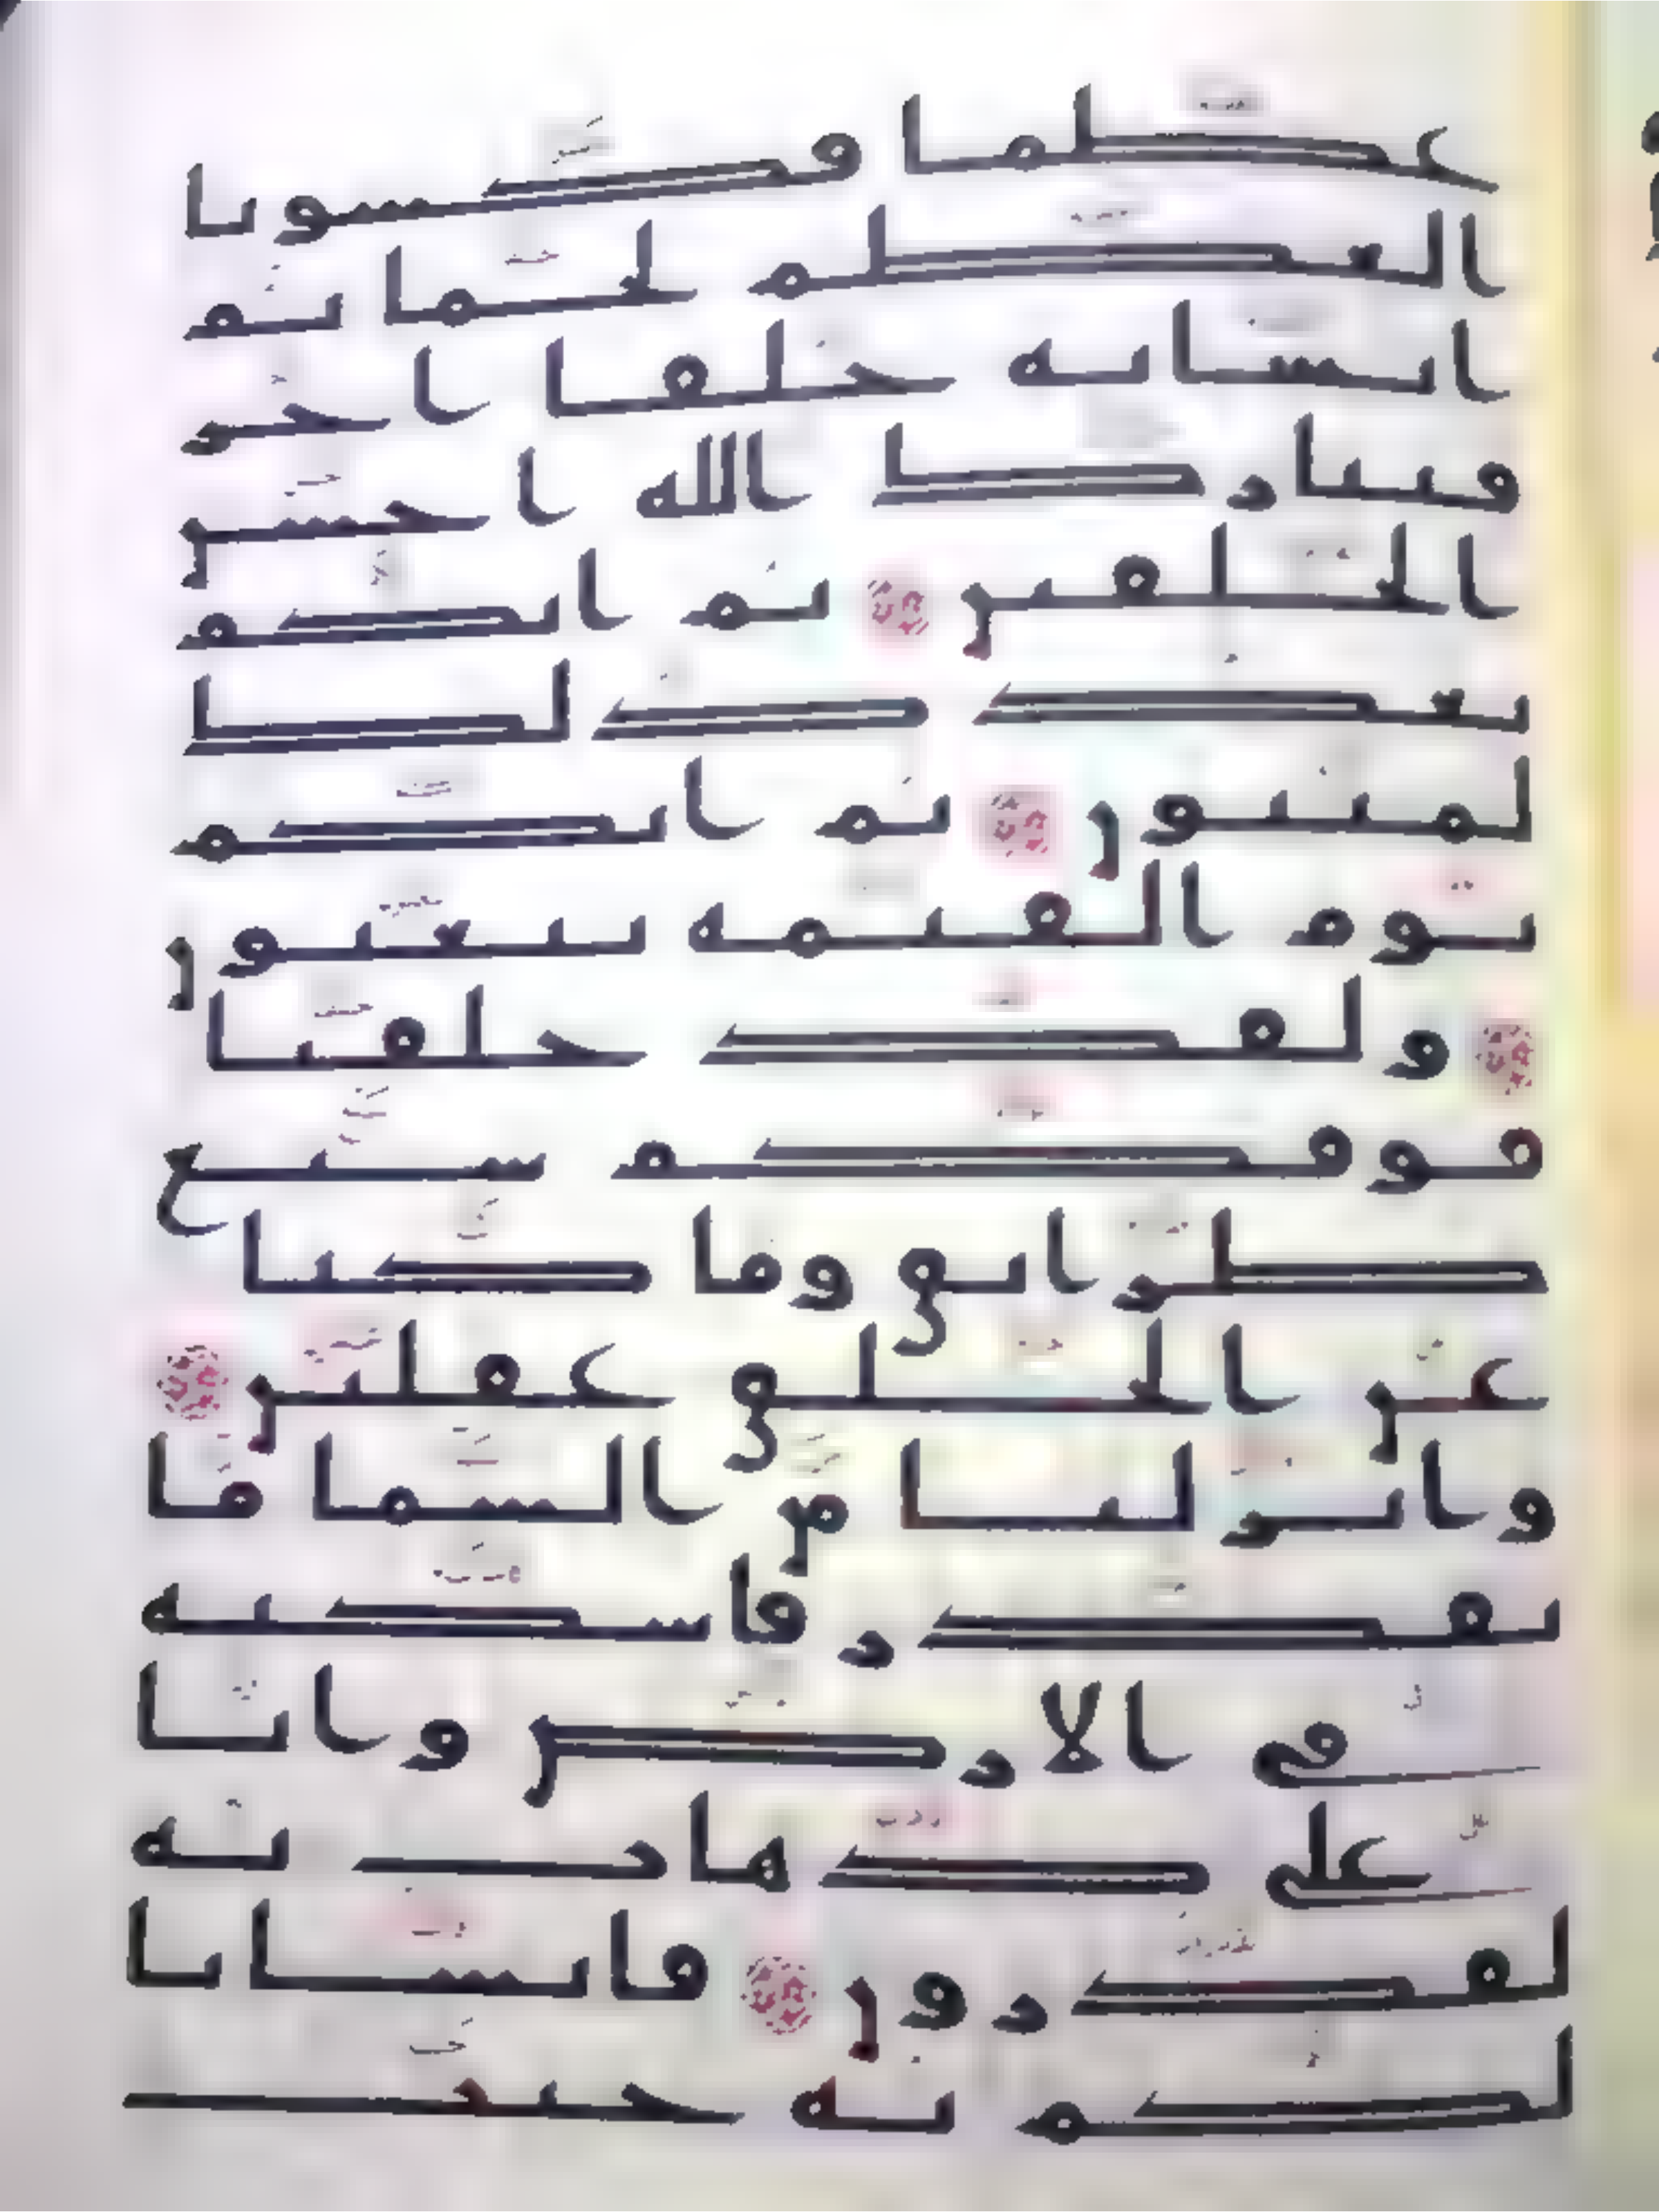 عظما فكسونا
العظم لحما ثم
انشانه خلقا اخر
فتبارك الله احسن
الخلقين ثم انكم
بعد ذلك
لميتون ثم انكم
يوم القيمه تبعثون
ولقد خلقنا
فوقكم سبع
طرايق وما كنا
عن الخلق غفلين
وانزلنا من السما ما
بقدر فاسكنه
في الارض وانا
على ذهاب به
لقدرون فانشانا
لكم به جنت